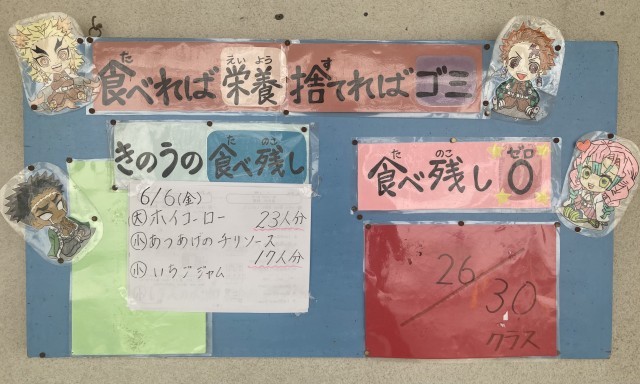 食べれば栄養捨てればゴミ
きのうの食べ残し
6/6(金)
大 ホイコーロー 23人分
小 あつあげのチリソース 17人分
小 いちごジャム
食べ残し0
26/30
クラス